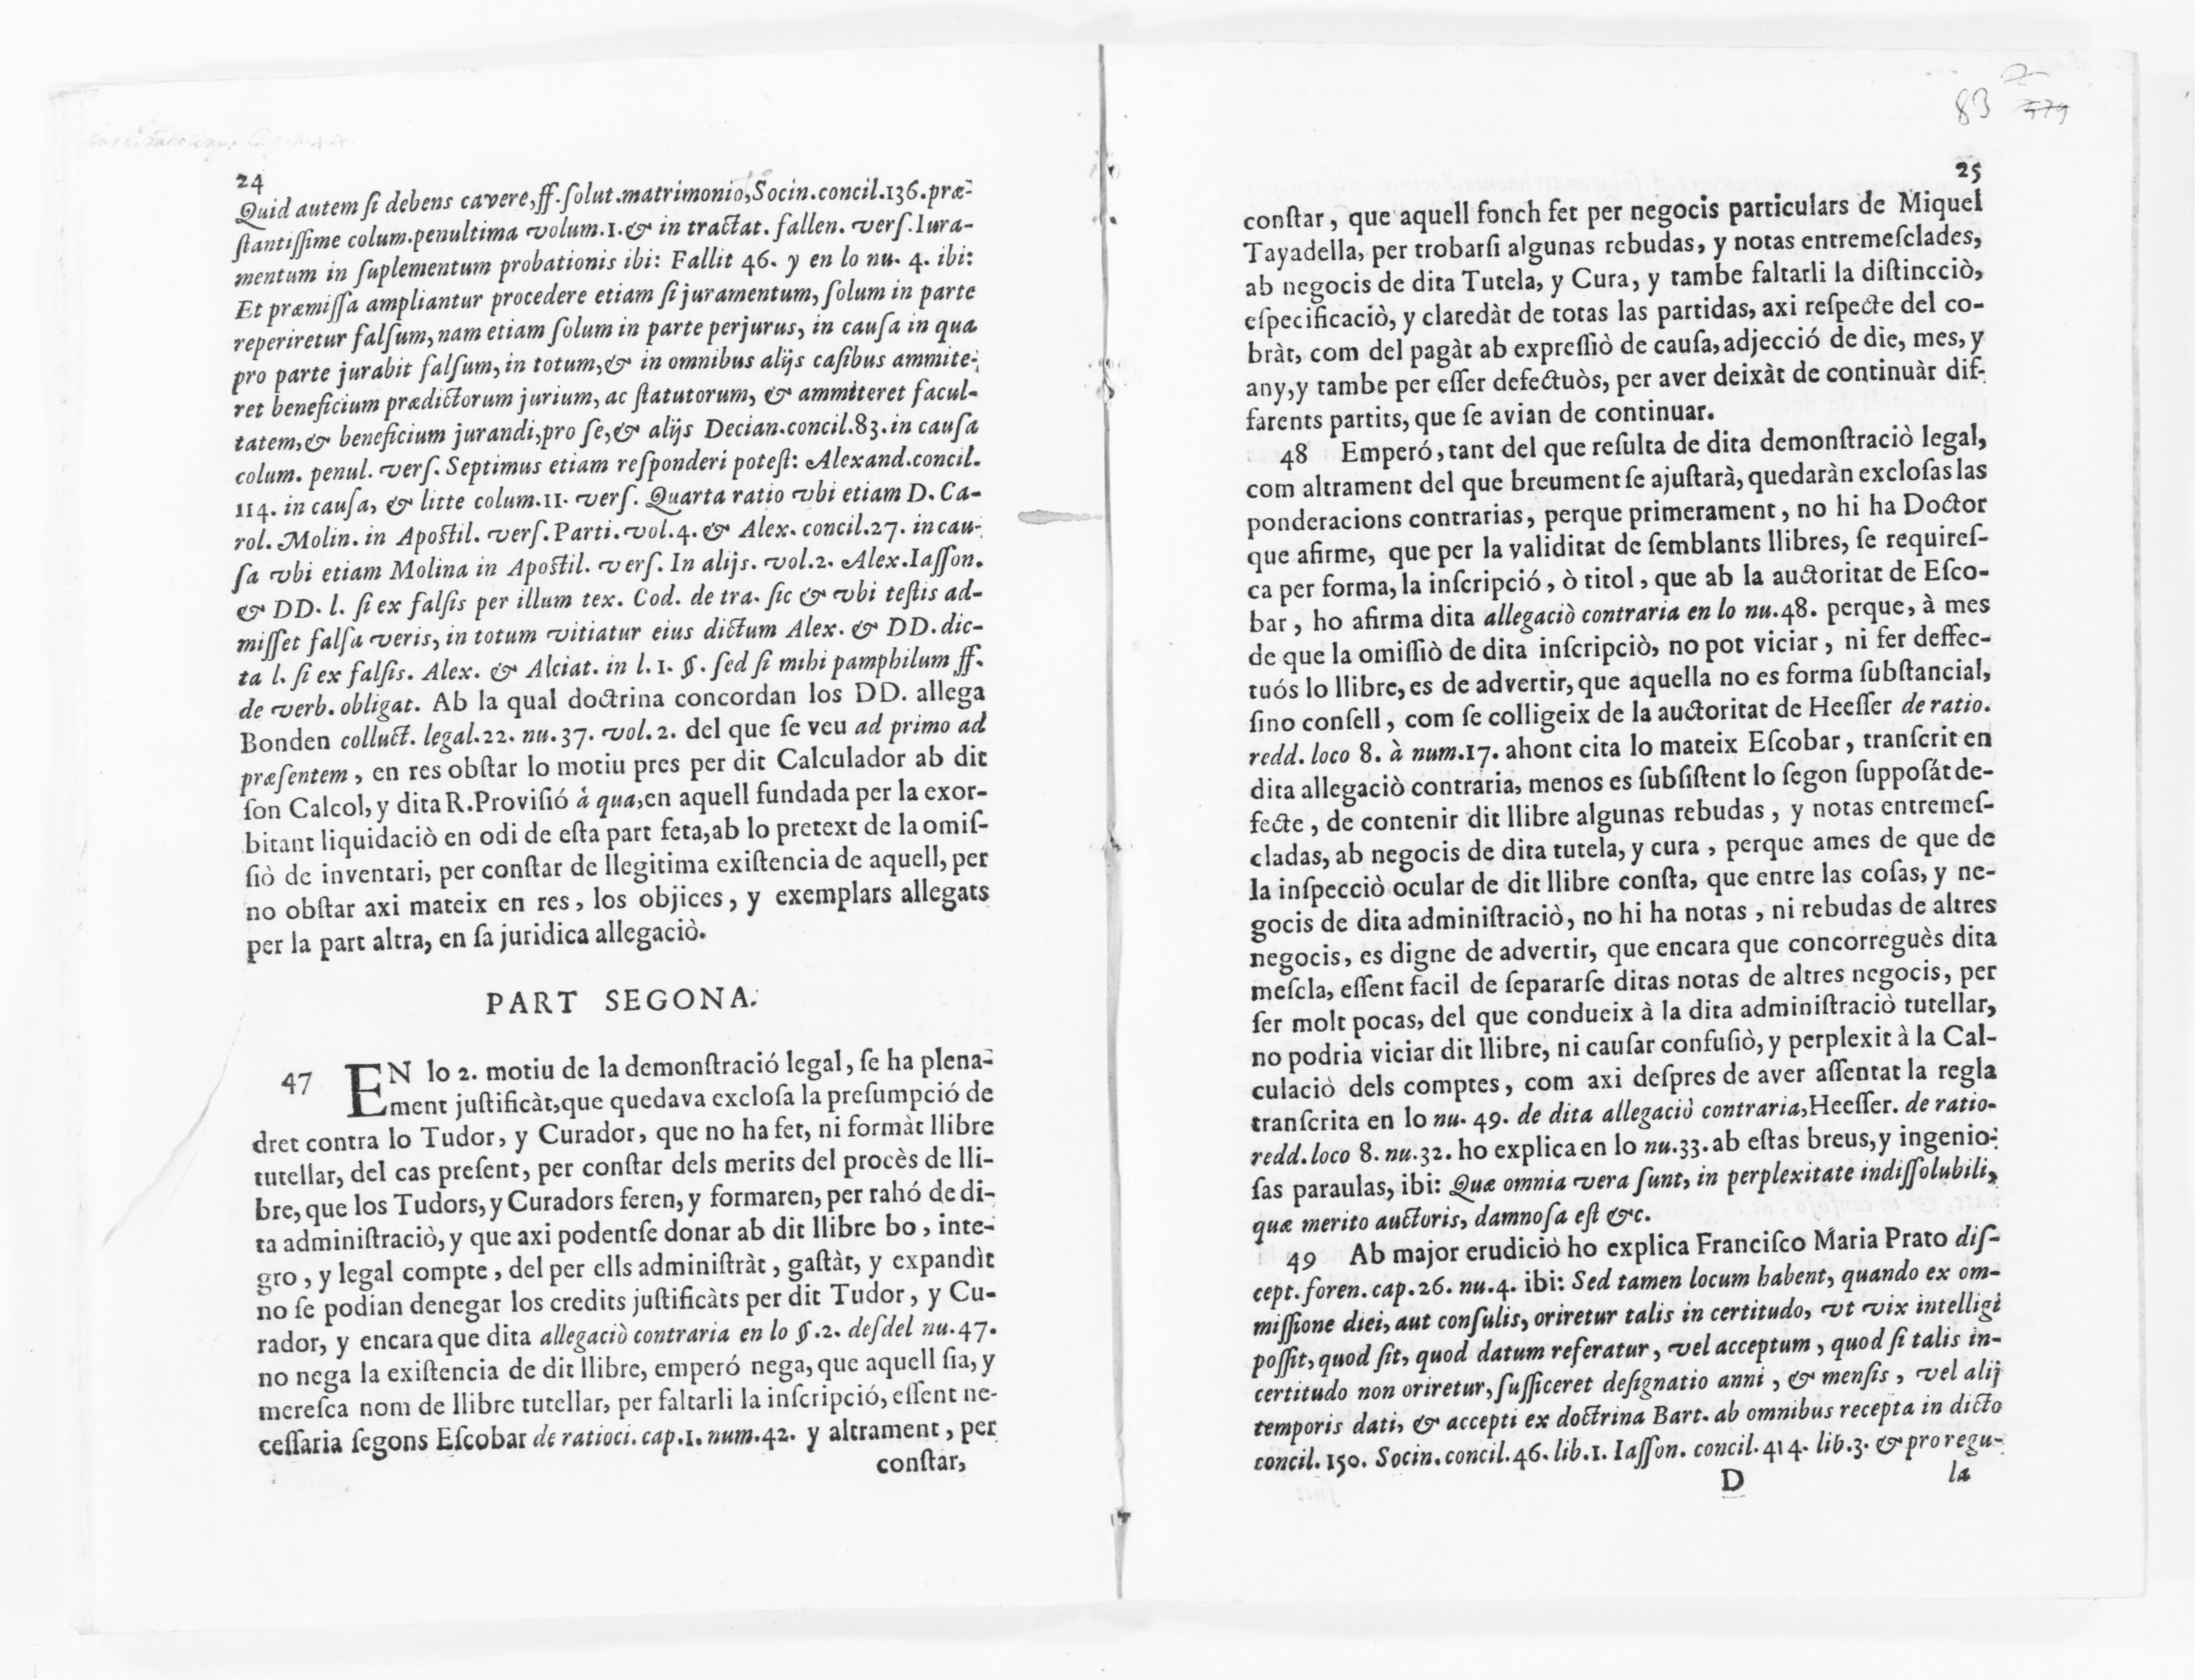 24
Quid autem ſi debens cavere, ff. ſolut. matrimonio, Socin. concil. 136. præ-
ſtantiſſime colum. penultima volum. 1. & in tractat. fallen. verſ. Iura-
mentum in ſuplementum probationis ibi: Fallit 46. y en lo nu. 4. ibi:
Et præmiſſa ampliantur procedere etiam ſi juramentum, ſolum in parte
reperiretur falſum, nam etiam ſolum in parte perjurus, in cauſa in qua
pro parte jurabit falſum, in totum, & in omnibus alijs caſibus ammite-
ret beneficium prædictorum jurium, ac ſtatutorum, & ammiteret facul-
tatem, & beneficium jurandi, pro ſe, & alijs Decian. concil. 83. in cauſa
colum. penul. verſ. Septimus etiam reſponderi poteſt: Alexand. concil.
114. in cauſa, & litte colum. 11. verſ. Quarta ratio vbi etiam D. Ca-
rol. Molin. in Apoſtil. verſ. Parti. vol. 4. & Alex. concil. 27. in cau-
ſa vbi etiam Molina in Apoſtil. verſ. In alijs. vol. 2. Alex. Iaſſon.
& DD. l. ſi ex falſis per illum tex. Cod. de tra. ſic & vbi teſtis ad-
miſſet falſa veris, in totum vitiatur eius dictum Alex. & DD. dic-
ta l. ſi ex falſis. Alex. & Alciat. in l. 1. §. ſed ſi mihi pamphilum ff.
de verb. obligat. Ab la qual doctrina concordan los DD. allega
Bonden colluct. legal. 22. nu. 37. vol. 2. del que ſe veu ad primo ad
præſentem, en res obſtar lo motiu pres per dit Calculador ab dit
ſon Calcol, y dita R. Proviſió à qua, en aquell fundada per la exor-
bitant liquidaciò en odi de eſta part feta, ab lo pretext de la omiſ-
ſiò de inventari, per conſtar de llegitima exiſtencia de aquell, per
no obſtar axi mateix en res, los objices, y exemplars allegats
per la part altra, en ſa juridica allegaciò.
PART SEGONA.
47 EN lo 2. motiu de la demonſtració legal, ſe ha plena-
ment juſtificàt, que quedava excloſa la preſumpció de
dret contra lo Tudor, y Curador, que no ha fet, ni formàt llibre
tutellar, del cas preſent, per conſtar dels merits del procès de lli-
bre, que los Tudors, y Curadors feren, y formaren, per rahó de di-
ta adminiſtraciò, y que axi podentſe donar ab dit llibre bo, inte-
gro, y legal compte, del per ells adminiſtràt, gaſtàt, y expandìt
no ſe podian denegar los credits juſtificàts per dit Tudor, y Cu-
rador, y encara que dita allegaciò contraria en lo §. 2. deſdel nu. 47.
no nega la exiſtencia de dit llibre, emperó nega, que aquell ſia, y
mereſca nom de llibre tutellar, per faltarli la inſcripció, eſſent ne-
ceſſaria ſegons Eſcobar de ratioci. cap. 1. num. 42. y altrament, per
conſtar,
83 2
579
25
conſtar, que aquell fonch fet per negocis particulars de Miquel
Tayadella, per trobarſi algunas rebudas, y notas entremeſclades,
ab negocis de dita Tutela, y Cura, y tambe faltarli la diſtincciò,
eſpecificaciò, y claredàt de totas las partidas, axi reſpecte del co-
bràt, com del pagàt ab expreſſiò de cauſa, adjecció de die, mes, y
any, y tambe per eſſer defectuòs, per aver deixàt de continuàr dif-
farents partits, que ſe avian de continuar.
48 Emperó, tant del que reſulta de dita demonſtraciò legal,
com altrament del que breument ſe ajuſtarà, quedaràn excloſas las
ponderacions contrarias, perque primerament, no hi ha Doctor
que afirme, que per la validitat de ſemblants llibres, ſe requireſ-
ca per forma, la inſcripció, ò titol, que ab la auctoritat de Eſco-
bar, ho afirma dita allegaciò contraria en lo nu. 48. perque, à mes
de que la omiſſiò de dita inſcripciò, no pot viciar, ni fer deffec-
tuós lo llibre, es de advertir, que aquella no es forma ſubſtancial,
ſino conſell, com ſe colligeix de la auctoritat de Heeſſer de ratio.
redd. loco 8. à num. 17. ahont cita lo mateix Eſcobar, tranſcrit en
dita allegaciò contraria, menos es ſubſiſtent lo ſegon ſuppoſát de-
fecte, de contenir dit llibre algunas rebudas, y notas entremeſ-
cladas, ab negocis de dita tutela, y cura, perque ames de que de
la inſpecciò ocular de dit llibre conſta, que entre las coſas, y ne-
gocis de dita adminiſtraciò, no hi ha notas, ni rebudas de altres
negocis, es digne de advertir, que encara que concorreguès dita
meſcla, eſſent facil de ſepararſe ditas notas de altres negocis, per
ſer molt pocas, del que condueix à la dita adminiſtraciò tutellar,
no podria viciar dit llibre, ni cauſar confuſiò, y perplexit à la Cal-
culaciò dels comptes, com axi deſpres de aver aſſentat la regla
tranſcrita en lo nu. 49. de dita allegaciò contraria, Heeſſer. de ratio.
redd. loco 8. nu. 32. ho explica en lo nu. 33. ab eſtas breus, y ingenio-
ſas paraulas, ibi: Quæ omnia vera ſunt, in perplexitate indiſſolubili,
quæ merito auctoris, damnoſa eſt &c.
49 Ab major erudiciò ho explica Franciſco Maria Prato diſ-
cept. foren. cap. 26. nu. 4. ibi: Sed tamen locum habent, quando ex om-
miſſione diei, aut conſulis, oriretur talis in certitudo, vt vix intelligi
poſſit, quod ſit, quod datum referatur, vel acceptum, quod ſi talis in-
certitudo non oriretur, ſufficeret deſignatio anni, & menſis, vel alij
temporis dati, & accepti ex doctrina Bart. ab omnibus recepta in dicto
concil. 150. Socin. concil. 46. lib. 1. Iaſſon. concil. 414. lib. 3. & pro regu-
D la